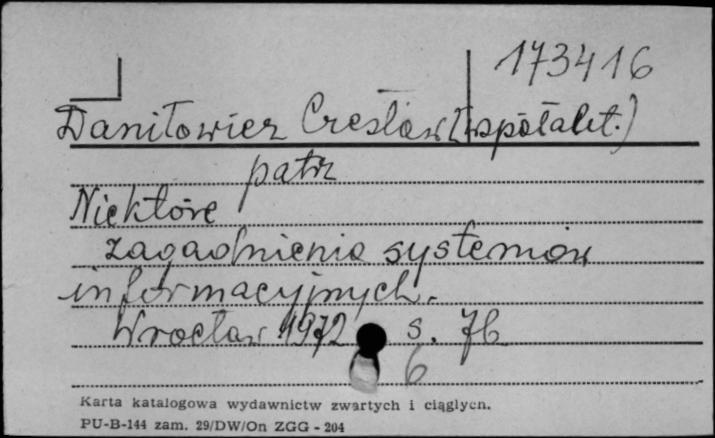 173416
Daniłowicz Czesław [współaut.)
patrz
Niektóre
zagadnienia systemów
informacyjnych.
Wrocław 1972 s. 76
6
Karta katalogowa wydawnictw zwartych i ciągłych.
PU-B-144 zam. 29/DW/On ZGG - 204